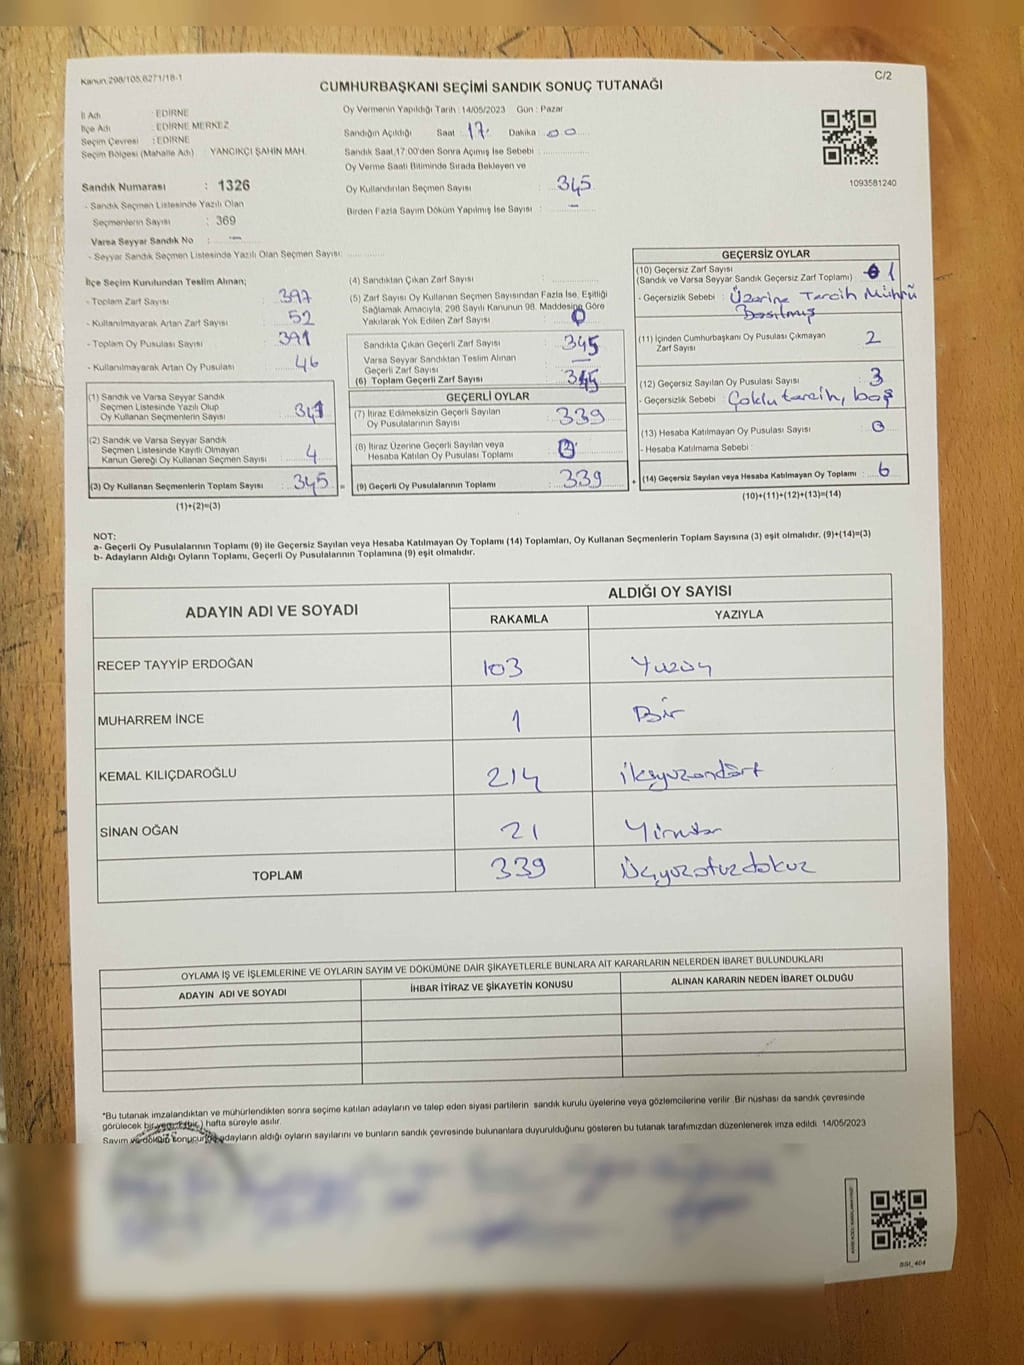 Kanun 298/105,6271/18-1
C/2
CUMHURBAŞKANI SEÇİMİ SANDIK SONUÇ TUTANAĞI
İl Adı : EDİRNE
İlçe Adı : EDİRNE MERKEZ
Seçim Çevresi : EDİRNE
Seçim Bölgesi (Mahalle Adı) : YANCIKÇI ŞAHİN MAH.
Sandık Numarası : 1326
- Sandık Seçmen Listesinde Yazılı Olan
Seçmenlerin Sayısı : 369
Varsa Seyyar Sandık No : —
- Seyyar Sandık Seçmen Listesinde Yazılı Olan Seçmen Sayısı:
Oy Vermenin Yapıldığı Tarih : 14/05/2023 Gün : Pazar
Sandığın Açıldığı Saat : 17. Dakika : 00
Sandık Saat 17:00'den Sonra Açımış İse Sebebi :
Oy Verme Saati Bitiminde Sırada Bekleyen ve
Oy Kullandırılan Seçmen Sayısı : 345
Birden Fazla Sayım Döküm Yapılmış İse Sayısı : —
1093581240
İlçe Seçim Kurulundan Teslim Alınan;
- Toplam Zarf Sayısı : 397
- Kullanılmayarak Artan Zarf Sayısı : 52
- Toplam Oy Pusulası Sayısı : 391
- Kullanılmayarak Artan Oy Pusulası : 46
(1) Sandık ve Varsa Seyyar Sandık
Seçmen Listesinde Yazılı Olup
Oy Kullanan Seçmenlerin Sayısı : 341
(2) Sandık ve Varsa Seyyar Sandık
Seçmen Listesinde Kayıtlı Olmayan
Kanun Gereği Oy Kullanan Seçmen Sayısı : 4
(3) Oy Kullanan Seçmenlerin Toplam Sayısı : 345
(1)+(2)=(3)
(4) Sandıktan Çıkan Zarf Sayısı :
(5) Zarf Sayısı Oy Kullanan Seçmen Sayısından Fazla İse, Eşitliği
Sağlamak Amacıyla; 298 Sayılı Kanunun 98. Maddesine Göre
Yakılarak Yok Edilen Zarf Sayısı : 0
Sandıkta Çıkan Geçerli Zarf Sayısı : 345
Varsa Seyyar Sandıktan Teslim Alınan
Geçerli Zarf Sayısı : —
(6) Toplam Geçerli Zarf Sayısı : 345
GEÇERLİ OYLAR
(7) İtiraz Edilmeksizin Geçerli Sayılan
Oy Pusulalarının Sayısı : 339
(8) İtiraz Üzerine Geçerli Sayılan veya
Hesaba Katılan Oy Pusulası Toplamı :
= (9) Geçerli Oy Pusulalarının Toplamı : 339
GEÇERSİZ OYLAR
(10) Geçersiz Zarf Sayısı
(Sandık ve Varsa Seyyar Sandık Geçersiz Zarf Toplamı) : 1
- Geçersizlik Sebebi : Üzerine Tercih Mührü
Basılmış
(11) İçinden Cumhurbaşkanı Oy Pusulası Çıkmayan
Zarf Sayısı : 2
(12) Geçersiz Sayılan Oy Pusulası Sayısı : 3
- Geçersizlik Sebebi : Çoklu tercih, boş
(13) Hesaba Katılmayan Oy Pusulası Sayısı : 0
- Hesaba Katılmama Sebebi :
+ (14) Geçersiz Sayılan veya Hesaba Katılmayan Oy Toplamı : 6
(10)+(11)+(12)+(13)=(14)
NOT:
a- Geçerli Oy Pusulalarının Toplamı (9) ile Geçersiz Sayılan veya Hesaba Katılmayan Oy Toplamı (14) Toplamları, Oy Kullanan Seçmenlerin Toplam Sayısına (3) eşit olmalıdır. (9)+(14)=(3)
b- Adayların Aldığı Oyların Toplamı, Geçerli Oy Pusulalarının Toplamına (9) eşit olmalıdır.
ADAYIN ADI VE SOYADI ALDIĞI OY SAYISI
RAKAMLA YAZIYLA
RECEP TAYYİP ERDOĞAN 103 Yuzüç
MUHARREM İNCE 1 Bir
KEMAL KILIÇDAROĞLU 214 ikiyuzondört
SİNAN OĞAN 21
TOPLAM 339 Üçyuzotuzdokuz
OYLAMA İŞ VE İŞLEMLERİNE VE OYLARIN SAYIM VE DÖKÜMÜNE DAİR ŞİKAYETLERLE BUNLARA AİT KARARLARIN NELERDEN İBARET BULUNDUKLARI
ADAYIN ADI VE SOYADI İHBAR İTİRAZ VE ŞİKAYETİN KONUSU ALINAN KARARIN NEDEN İBARET OLDUĞU
*Bu tutanak imzalandıktan ve mühürlendikten sonra seçime katılan adayların ve talep eden siyasi partilerin sandık kurulu üyelerine veya gözlemcilerine verilir. Bir nüshası da sandık çevresinde
görülecek bir yere 1 (bir) hafta süreyle asılır.
Sayım ve döküm sonucunda adayların aldığı oyların sayılarını ve bunların sandık çevresinde bulunanlara duyurulduğunu gösteren bu tutanak tarafımızdan düzenlenerek imza edildi. 14/05/2023